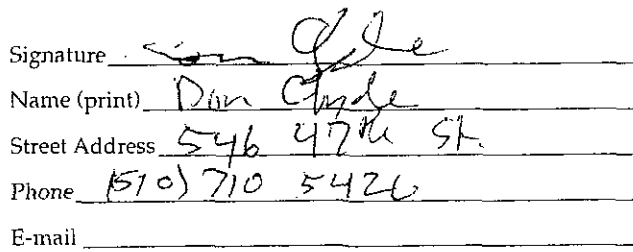 Signature
Name (print) Don Clyde
Street Address 546 47th St.
Phone (510) 710 5426
E-mail